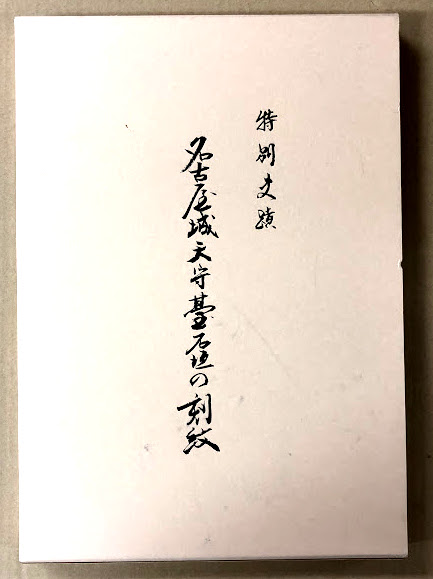 特別史蹟
名古屋城天守臺石垣の刻紋